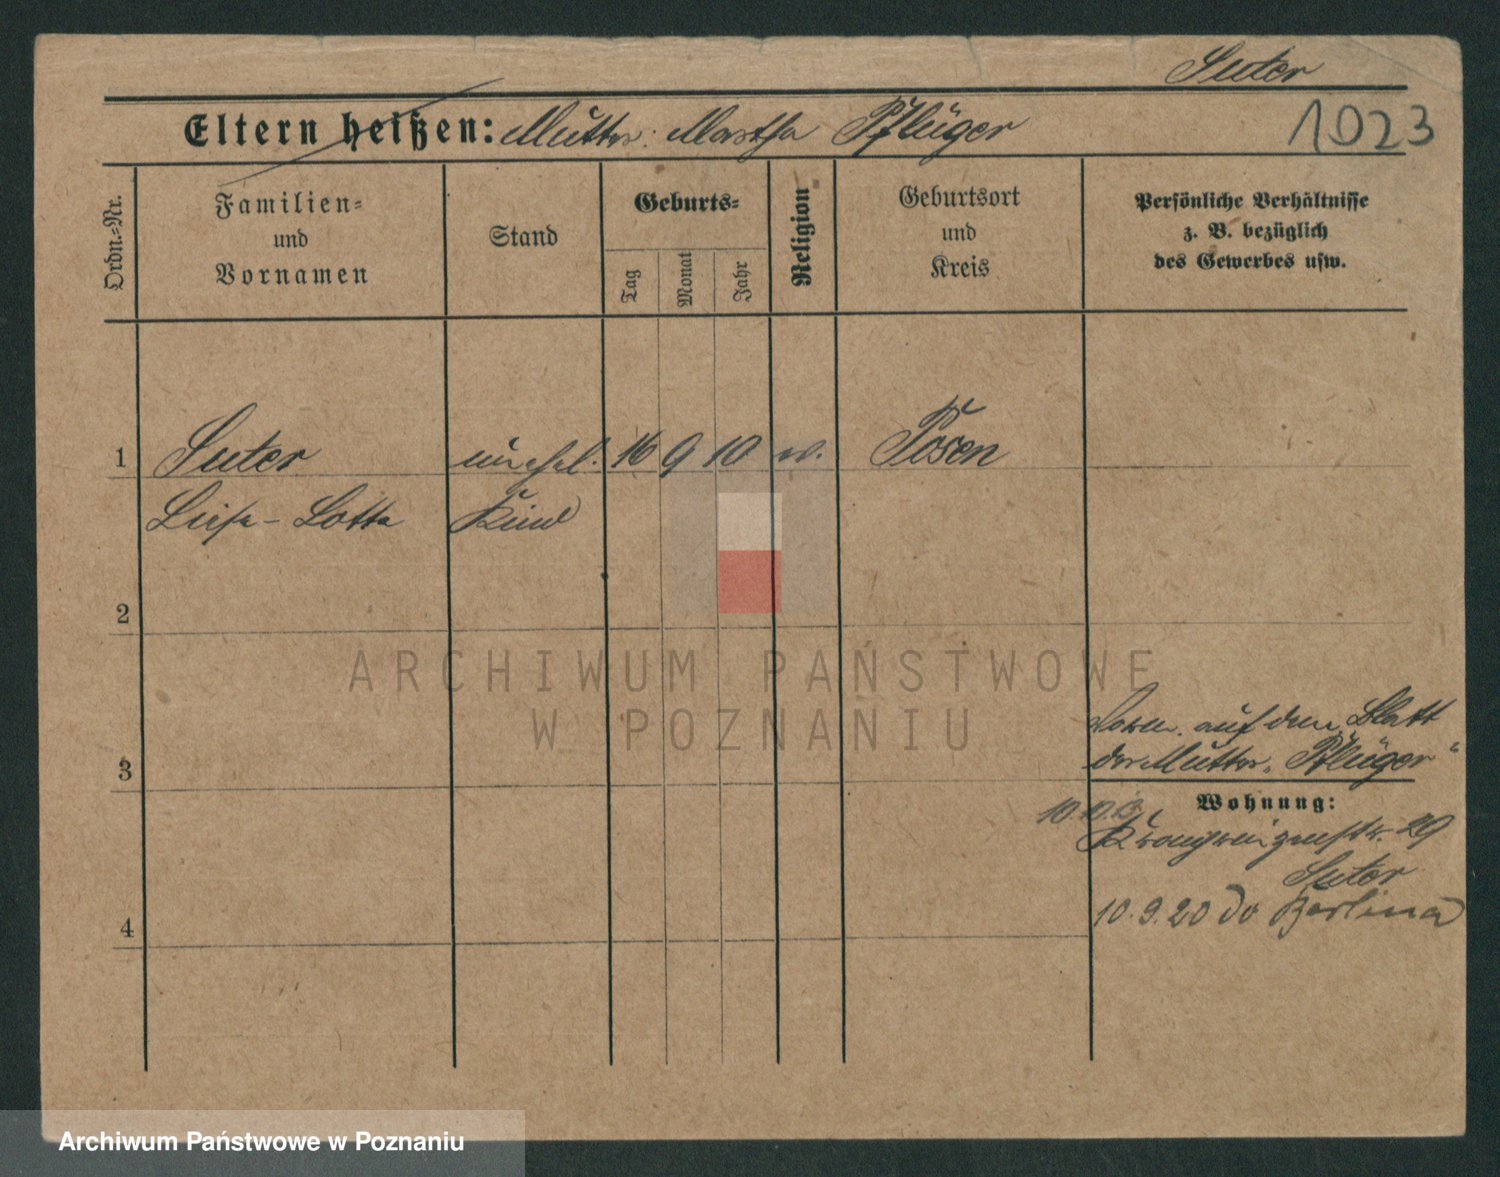 Suter
Eltern heißen: Mutter: Martha Pflüger
1023
Ordn.-Nr.
Familien-
und
Vornamen
Stand
Geburts-
Tag
Monat
Jahr
Religion
Geburtsort
und
Kreis
Persönliche Verhältnisse
z. B. bezüglich
des Gewerbes usw.
1 Suter unehel. 16 9 10 Posen
Kind
2
3
auf dem Blatt
der Mutter „Pflüger“
Wohnung:
29
Suter
10.9.20 do Berlina
4
ARCHIWUM PAŃSTWOWE
W POZNANIU
Archiwum Państwowe w Poznaniu